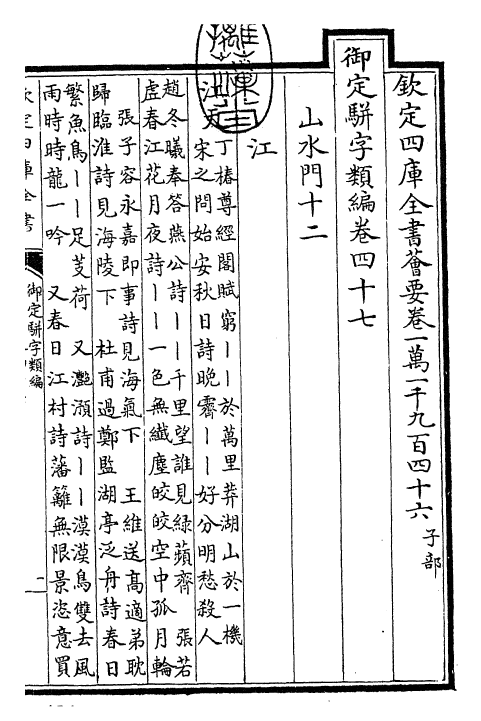 欽定四庫全書薈要卷一萬一千九百四十六 子部
御定駢字類編卷四十七
山水門十二
江
江天
丁椿尊經閣賦窮丨丨於萬里莽湖山於一機
宋之問始安秋日詩晚霽丨丨好分明愁殺人
趙冬曦奉答燕公詩丨丨千里望誰見綠蘋齊 張若
虛春江花月夜詩丨丨一色無纖塵皎皎空中孤月輪
張子容永嘉即事詩見海氣下 王維送高適弟耽
歸臨淮詩見海陵下 杜甫過鄭監湖亭泛舟詩春日
繁魚鳥丨丨足芰荷 又灩澦詩丨丨漠漠鳥雙去風
雨時時龍一吟 又春日江村詩藩籬無限景恣意買
欽定四庫全書
御定駢字類編
一